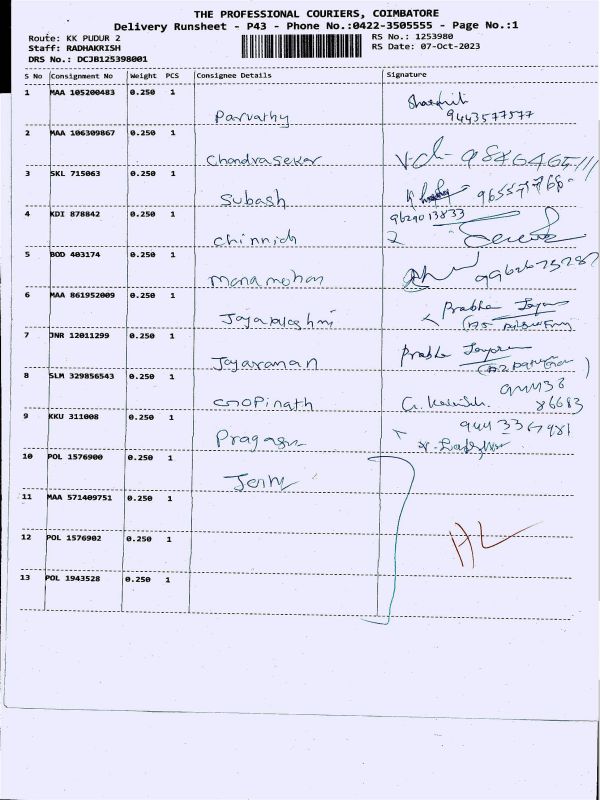 THE PROFESSIONAL COURIERS, COIMBATORE
Delivery Runsheet - P43 - Phone No.:0422-3505555 - Page No.:1
Route: KK PUDUR 2
RS No.: 1253980
Staff: RADHAKRISH
RS Date: 07-Oct-2023
DRS No.: DCJB125398001
S No Consignment No Weight PCS Consignee Details Signature
1 MAA 105200483 0.250 1 Parvathy
9443577577
2 MAA 106309867 0.250 1 Chandrasekar
3 SKL 715063 0.250 1 Subash
4 KDI 878842 0.250 1 Chinnich
9629013833
5 BOD 403174 0.250 1 Manamohan
6 MAA 861952009 0.250 1 Prabha
7 JNR 12011299 0.250 1 Jayaraman Prabha
8 SLM 329856543 0.250 1 Gopinath
94438
86683
9 KKU 311008 0.250 1
9443367981
10 POL 1576900 0.250 1
11 MAA 571409751 0.250 1
12 POL 1576902 0.250 1
13 POL 1943528 0.250 1